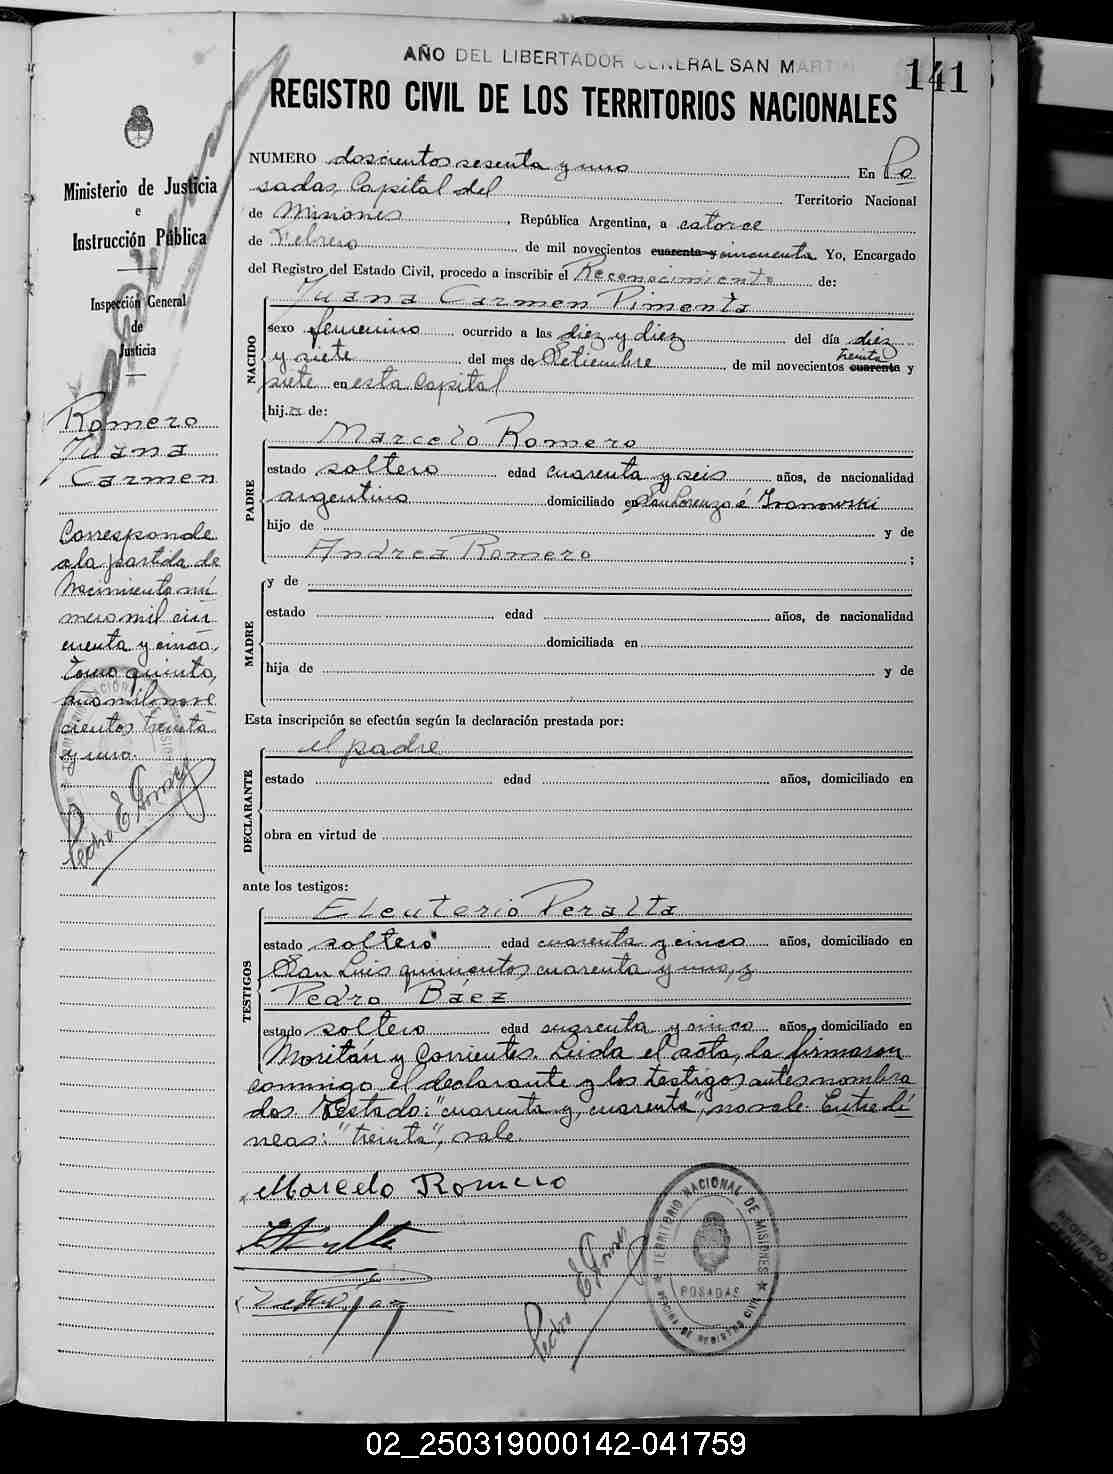 AÑO DEL LIBERTADOR GENERAL SAN MARTIN
141
REGISTRO CIVIL DE LOS TERRITORIOS NACIONALES
Ministerio de Justicia
e
Instrucción Pública
Inspección General
de
Justicia
Romero
Juana
Carmen
Corresponde
a la partida de
Nacimiento nú
mero mil cin
cuenta y cinco,
tomo quinto,
año mil nove
cientos treinta
y uno.
Pedro E
NUMERO doscientos sesenta y uno En Po
sadas, Capital del Territorio Nacional
de Misiones, República Argentina, a catorce
de Febrero de mil novecientos cuarenta y cincuenta Yo, Encargado
del Registro del Estado Civil, procedo a inscribir el Reconocimiento de:
NACIDO
Juana Carmen Pimenta
sexo femenino ocurrido a las diez y diez del día diez
y siete del mes de Setiembre, de mil novecientos cuarenta y
treinta
siete en esta Capital
hija de:
PADRE
Marcelo Romero
estado soltero edad cuarenta y seis años, de nacionalidad
argentino domiciliado en San Lorenzo é
hijo de y de
Andrea Romero;
MADRE
y de
estado edad años, de nacionalidad
domiciliada en
hija de y de
Esta inscripción se efectúa según la declaración prestada por:
DECLARANTE
el padre
estado edad años, domiciliado en
obra en virtud de
ante los testigos:
TESTIGOS
Eleuterio Peralta
estado soltero edad cuarenta y cinco años, domiciliado en
San Luis quinientos cuarenta y uno, y
Pedro Báez
estado soltero edad cuarenta y cinco años, domiciliado en
Moritán y Corrientes. Leida el acta, la firmaron
conmigo el declarante y los testigos antes nombra
dos. Testado: "cuarenta y, cuarenta", no vale. Entre lí
neas: "treinta", vale.
Marcelo Romero
Pedro E
TERRITORIO NACIONAL DE MISIONES
POSADAS
OFICINA DE REGISTRO CIVIL
02_250319000142-041759